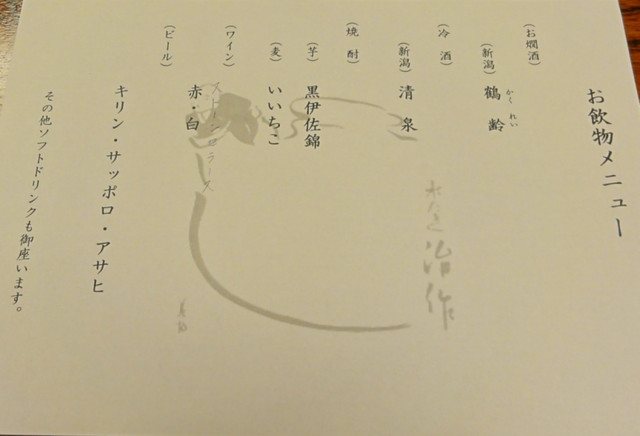 お飲物メニュー
(お燗酒)
(新潟) 鶴齢
かくれい
(冷酒)
(新潟) 清泉
(焼酎)
(芋) 黒伊佐錦
(麦) いいちこ
(ワイン)
赤・白
(ビール)
キリン・サッポロ・アサヒ
その他ソフトドリンクも御座います。
治作